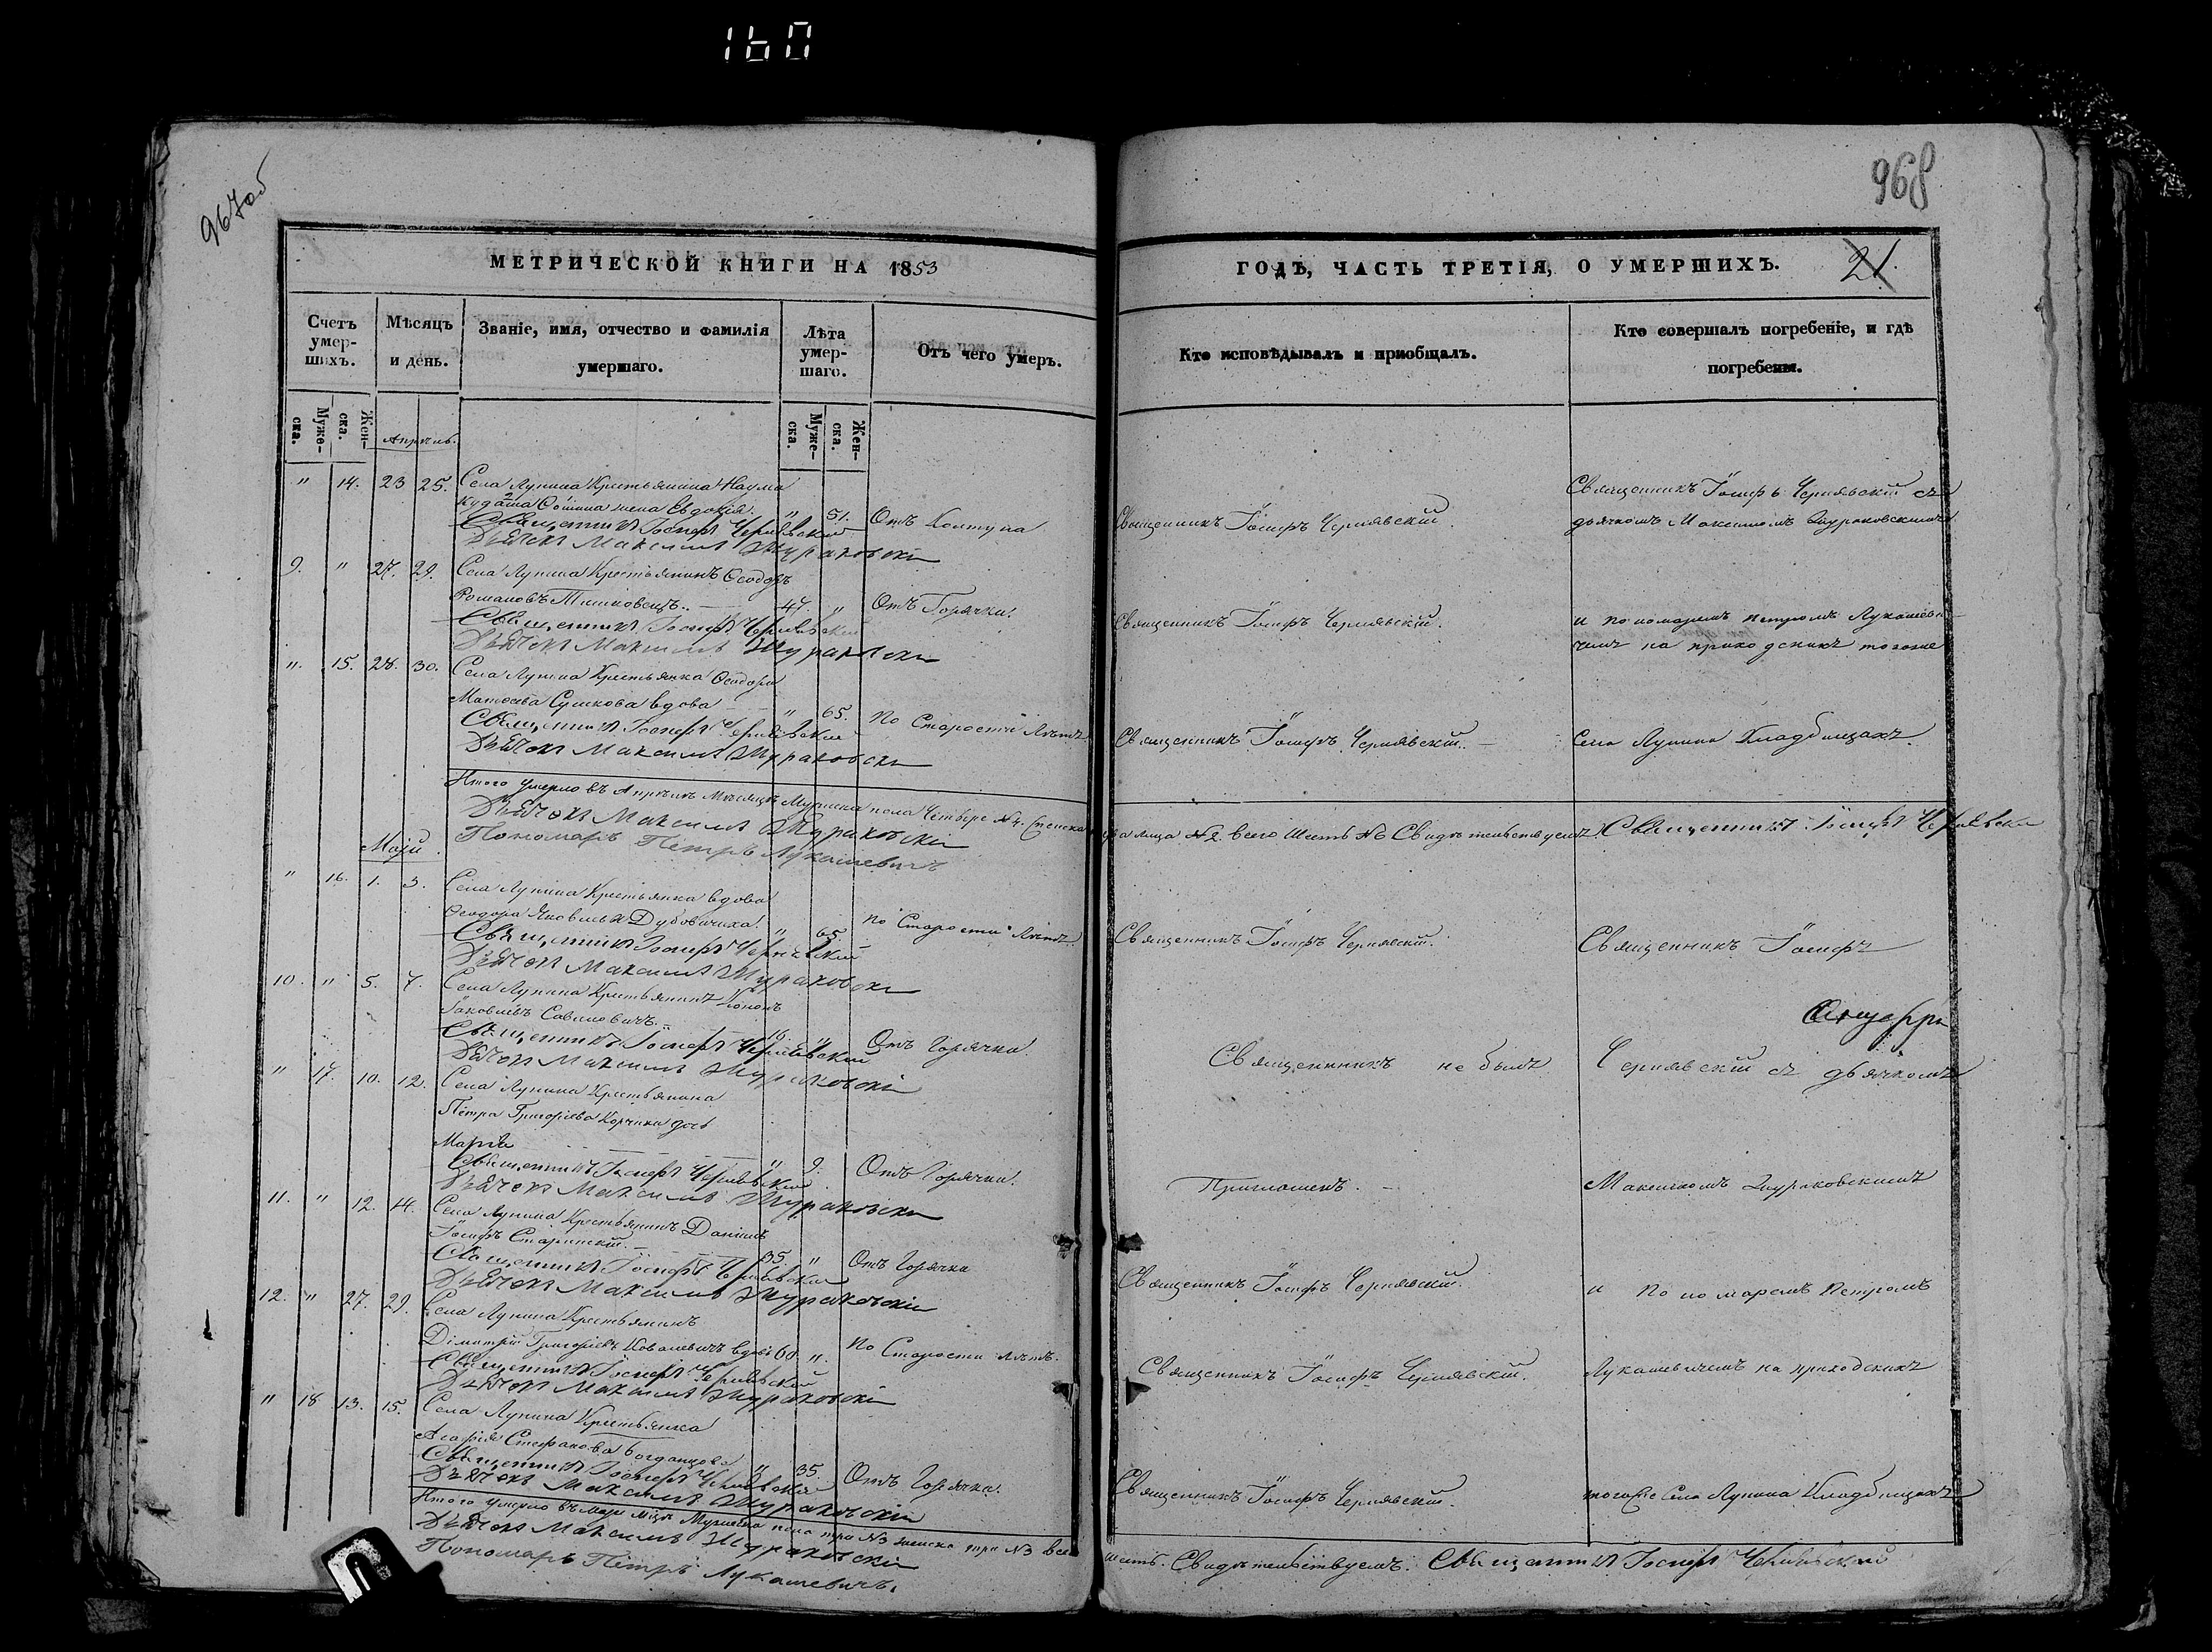 160
967об
968
МЕТРИЧЕСКОЙ КНИГИ НА 1853
ГОДЪ, ЧАСТЬ ТРЕТІЯ, О УМЕРШИХЪ.
21.
Счетъ умер-шихъ.
Мѣсяцъ и день.
Званіе, имя, отчество и фамилія умершаго.
Лѣта умер-шаго.
Отъ чего умеръ.
Кто исповѣдывалъ и приобщалъ.
Кто совершалъ погребеніе, и гдѣ погребены.
Муже-ска.
Жен-ска.
Муже-ска.
Жен-ска.
Апрѣль.
" 14. 23 25. Села Лунина Крестьянина Наума
жена Евдокія. " 51. Отъ Колтуна
Священникъ Іосифъ Чернявскій
Дьячекъ Максимъ Жураковскій
Священникъ Іосифъ Чернявскій.
Священникъ Іосифъ Чернявскій съ
дьячкомъ Максимомъ Жураковскимъ
9. " 27. 29. Села Лунина Крестьянинъ Ѳеодоръ
Романовъ 47. " Отъ Горячки.
Священникъ Іосифъ Чернявскій
Дьячекъ Максимъ Жураковскій
Священникъ Іосифъ Чернявскій.
и пономаремъ Петромъ Лукашеви-
чемъ на приходскихъ тогоже
". 15. 28. 30. Села Лунина Крестьянка Ѳеодора
вдова " 65. По Старости Лѣтъ
Священникъ Іосифъ Чернявскій
Дьячекъ Максимъ Жураковскій
Священникъ Іосифъ Чернявскій.
Села Лунина Кладбищахъ.
Итого умерло въ Апрѣлѣ Мѣсяцѣ Мужеска пола Четыре №4. Женска два лица №2. Всего Шесть №6 Свидѣтельствуемъ. Священникъ Іосифъ Чернявскій
Дьячекъ Максимъ Жураковскій
Пономарь Петръ Лукашевичъ
Маій.
" 16. 1. 3. Села Лунина Крестьянка вдова
Ѳеодора Дубовичиха. " 65 По Старости Лѣтъ.
Священникъ Іосифъ Чернявскій
Дьячекъ Максимъ Жураковскій
Священникъ Іосифъ Чернявскій.
Священникъ Іосифъ
10. " 5. 7. Села Лунина Крестьянинъ Кононъ
Іаковлевъ Савиловичъ. " Отъ Горячки.
Священникъ Іосифъ Чернявскій
Дьячекъ Максимъ Жураковскій
Священникъ не былъ
Чернявскій съ дьячкомъ
" 17. 10. 12. Села Лунина Крестьянина
Петра Григорьева Корчика дочь
Марія " 9. Отъ Горячки.
Священникъ Іосифъ Чернявскій
Дьячекъ Максимъ Жураковскій
Приглашенъ.
Максимомъ Жураковскимъ
11. " 12. 14. Села Лунина Крестьянинъ Даніилъ
Іосифъ 35. " Отъ Горячки
Священникъ Іосифъ Чернявскій
Дьячекъ Максимъ Жураковскій
Священникъ Іосифъ Чернявскій.
и пономаремъ Петромъ
12. " 27. 29. Села Лунина Крестьянинъ
Димитрій Григорьевъ Ковалевичъ 60. ". По Старости Лѣтъ.
Священникъ Іосифъ Чернявскій
Дьячекъ Максимъ Жураковскій
Священникъ Іосифъ Чернявскій.
Лукашевичемъ на приходскихъ
" 18 13. 15. Села Лунина Крестьянка
Агафія Стефанова Богданцова " 35. Отъ Горячки.
Священникъ Іосифъ Чернявскій
Дьячекъ Максимъ Жураковскій
Священникъ Іосифъ Чернявскій.
тогоже Села Лунина Кладбищахъ
Итого умерло въ Маіи Мужеска пола три №3 женска три №3 всего шесть. Свидѣтельствуемъ. Священникъ Іосифъ Чернявскій
Дьячекъ Максимъ Жураковскій
Пономарь Петръ Лукашевичъ.